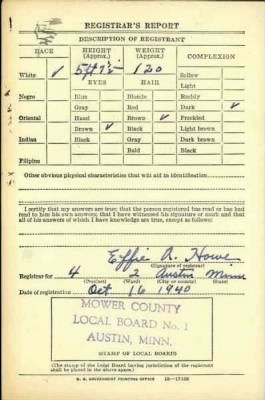 REGISTRAR'S REPORT
DESCRIPTION OF REGISTRANT
RACE HEIGHT (Approx.) WEIGHT (Approx.) COMPLEXION
White ✓ 5 ft 7½ 120 Sallow
EYES HAIR Light
Negro Blue Blonde Ruddy
Gray Red Dark ✓
Oriental Hazel Brown ✓ Freckled
Brown ✓ Black Light brown
Indian Black Gray Dark brown
Bald Black
Filipino
Other obvious physical characteristics that will aid in identification
I certify that my answers are true; that the person registered has read or has had
read to him his own answers; that I have witnessed his signature or mark and that
all of his answers of which I have knowledge are true, except as follows:
Effie A. Howe
(Signature of registrar)
Registrar for 4 2 Austin Minn
(Precinct) (Ward) (City or county) (State)
Date of registration Oct 16 1940
MOWER COUNTY
LOCAL BOARD No. 1
AUSTIN, MINN.
(STAMP OF LOCAL BOARD)
(The stamp of the Local Board having jurisdiction of the registrant
shall be placed in the above space.)
U. S. GOVERNMENT PRINTING OFFICE 16—17105